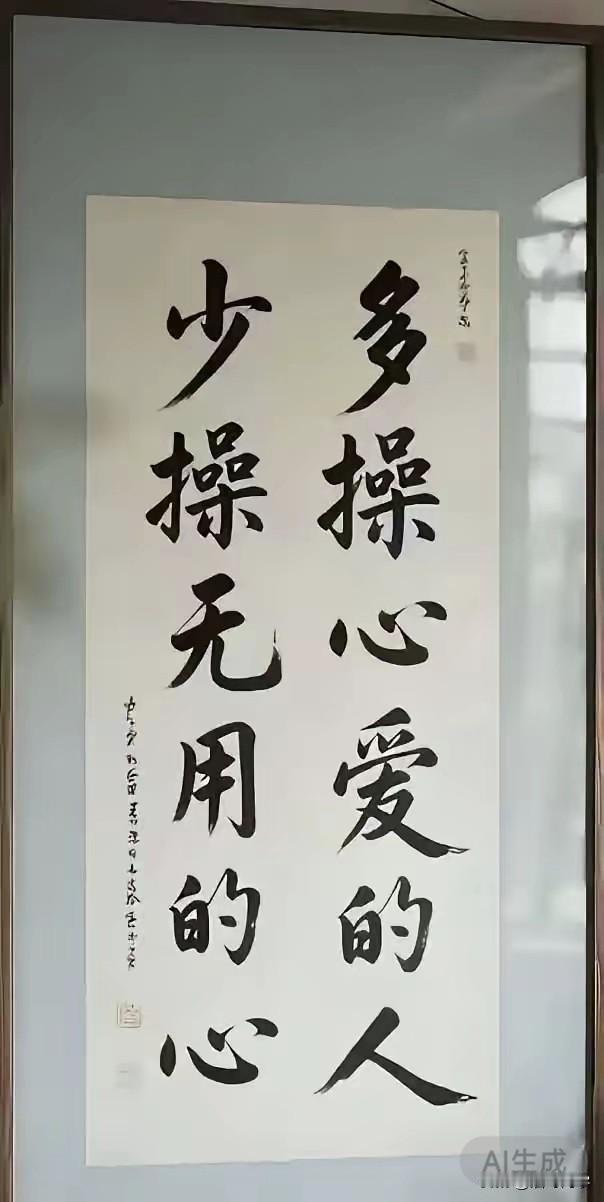 多操心爱的人
少操无用的心
AI生成